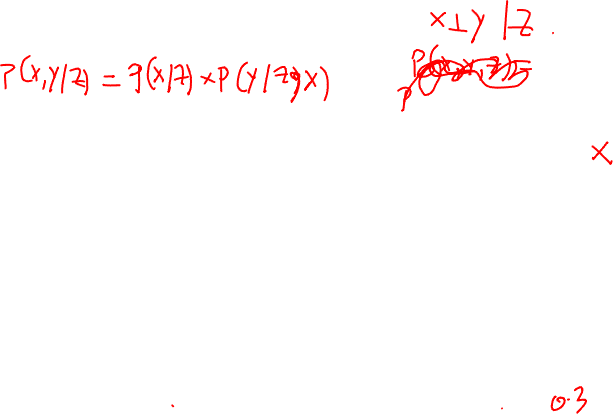 X⊥Y |Z.
P(X,Y|Z) = P(X|Z) × P(Y|Z,X)
X
0.3